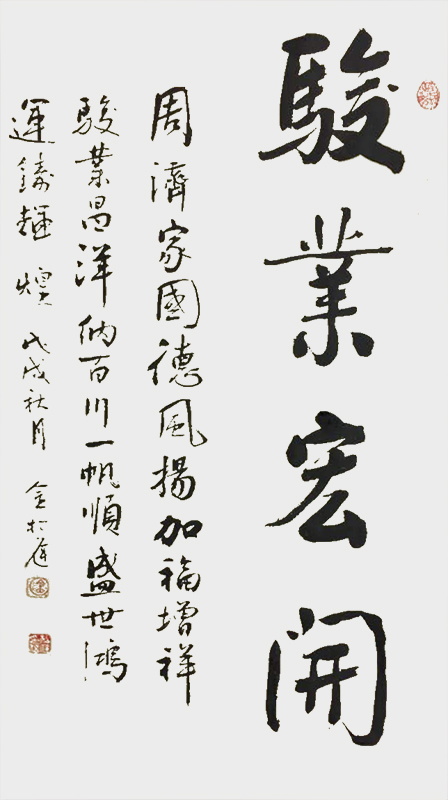 駿業宏開
周濟家國德風揚加福增祥
駿業昌洋納百川一帆順盛世鴻
運鑄輝煌 戊戌秋月 金松